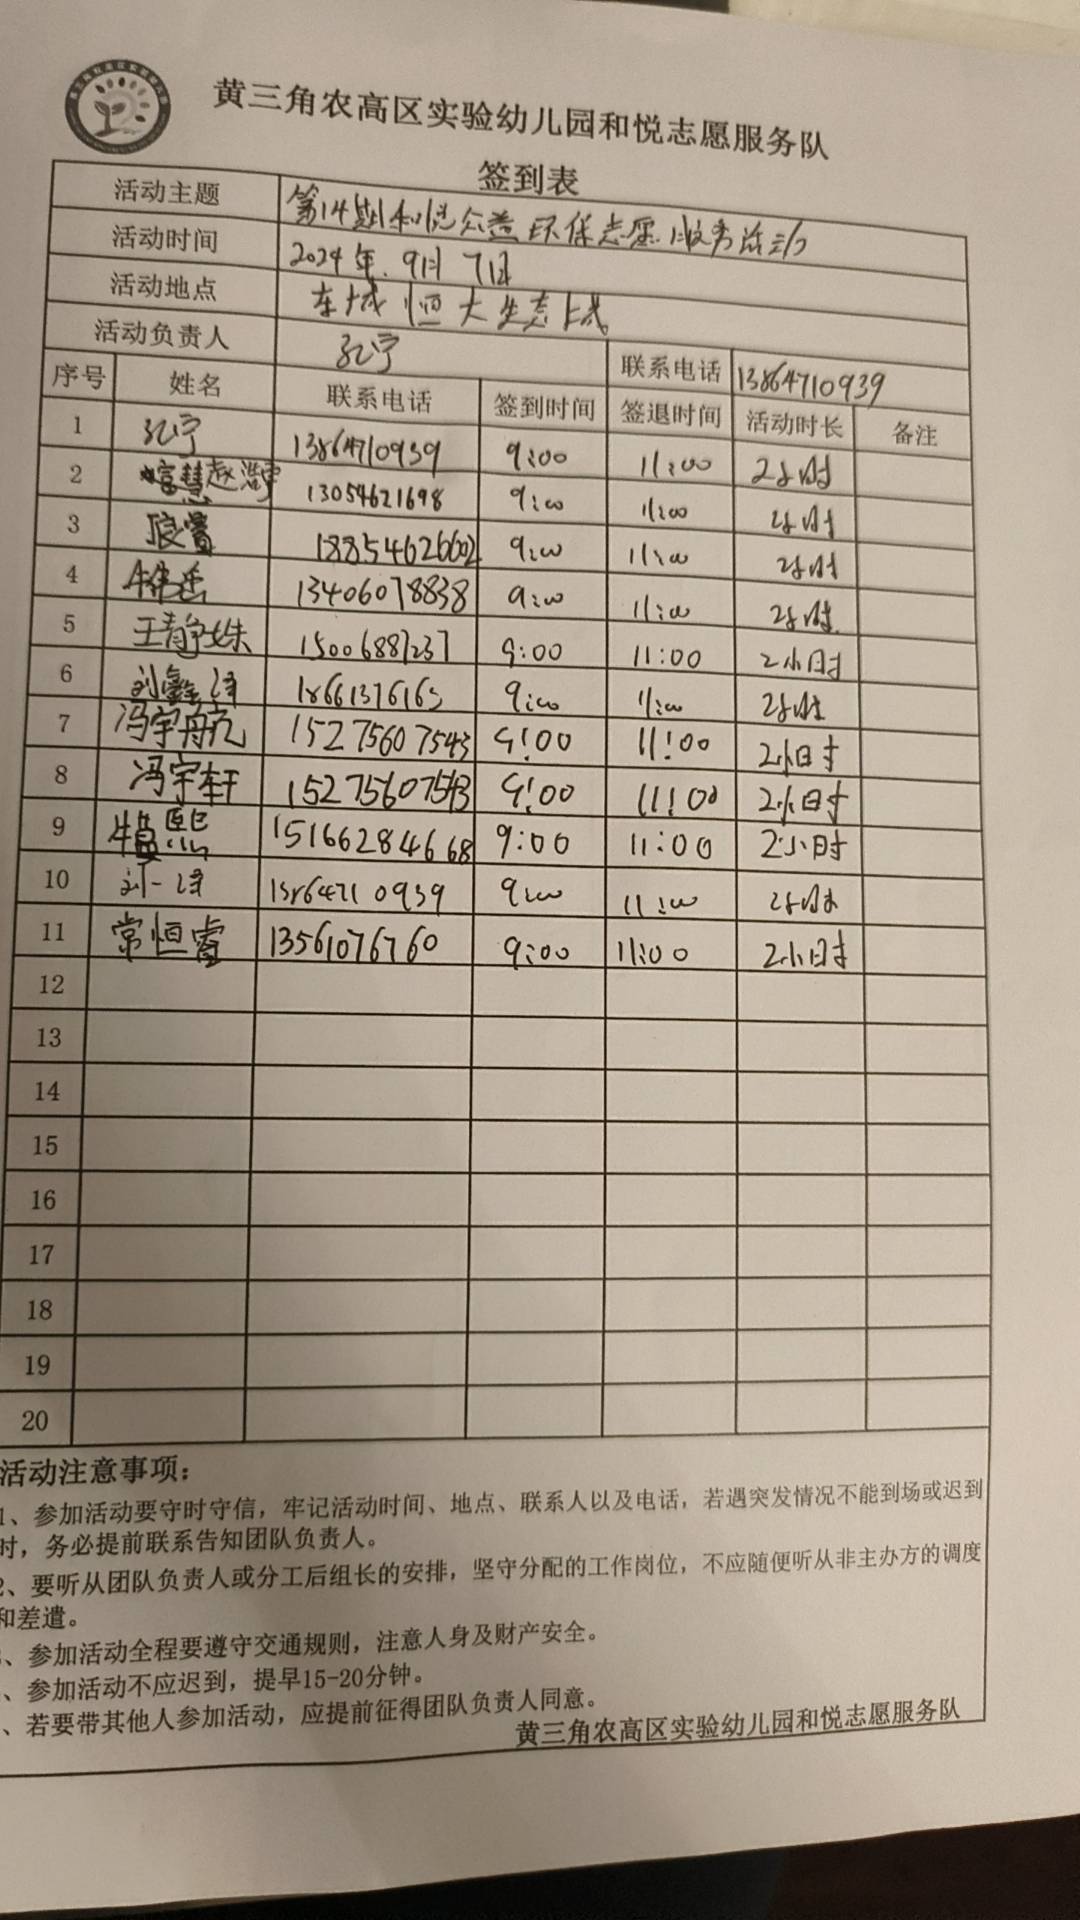 黄三角农高区实验幼儿园和悦志愿服务队
签到表
活动主题 第14期和悦公益环保志愿服务活动
活动时间 2024年.9月7日
活动地点 东城恒大生态城
活动负责人 孔宁 联系电话 13864710939
序号 姓名 联系电话 签到时间 签退时间 活动时长 备注
1 孔宁 13864710939 9:00 11:00 2小时
2 赵浩宇 13054621698 9:00 11:00 2小时
3 18854626602 9:00 11:00 2小时
4 13406078838 9:00 11:00 2小时
5 王静姝 15006887237 9:00 11:00 2小时
6 刘鑫泽 18661376163 9:00 11:00 2小时
7 冯宇航 15275607543 9:00 11:00 2小时
8 冯宇轩 15275607543 9:00 11:00 2小时
9 15166284668 9:00 11:00 2小时
10 刘一泽 13864710939 9:00 11:00 2小时
11 常恒睿 13561076760 9:00 11:00 2小时
12
13
14
15
16
17
18
19
20
活动注意事项：
1、参加活动要守时守信，牢记活动时间、地点、联系人以及电话，若遇突发情况不能到场或迟到
时，务必提前联系告知团队负责人。
2、要听从团队负责人或分工后组长的安排，坚守分配的工作岗位，不应随便听从非主办方的调度
和差遣。
、参加活动全程要遵守交通规则，注意人身及财产安全。
、参加活动不应迟到，提早15-20分钟。
、若要带其他人参加活动，应提前征得团队负责人同意。
黄三角农高区实验幼儿园和悦志愿服务队